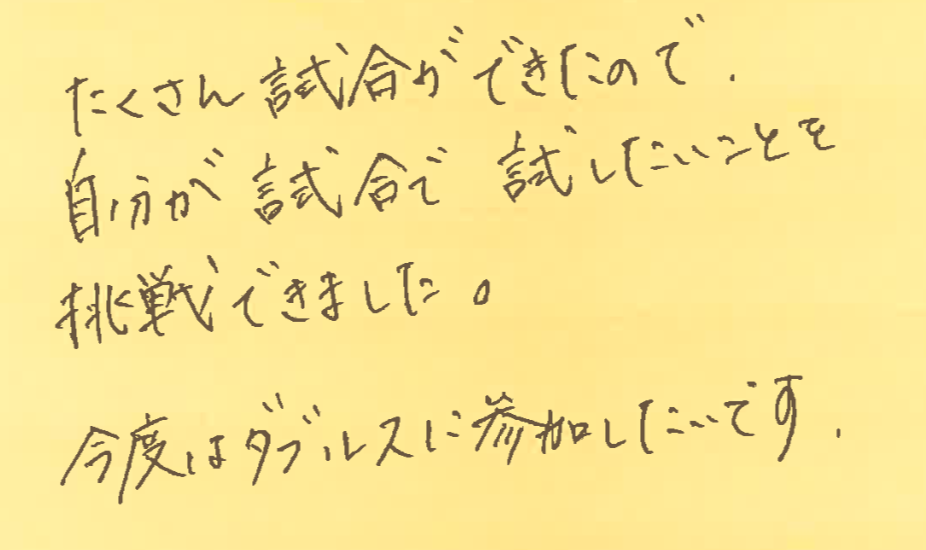 たくさん試合ができたので、
自分が試合で試したいことを
挑戦できました。
今度はダブルスに参加したいです、